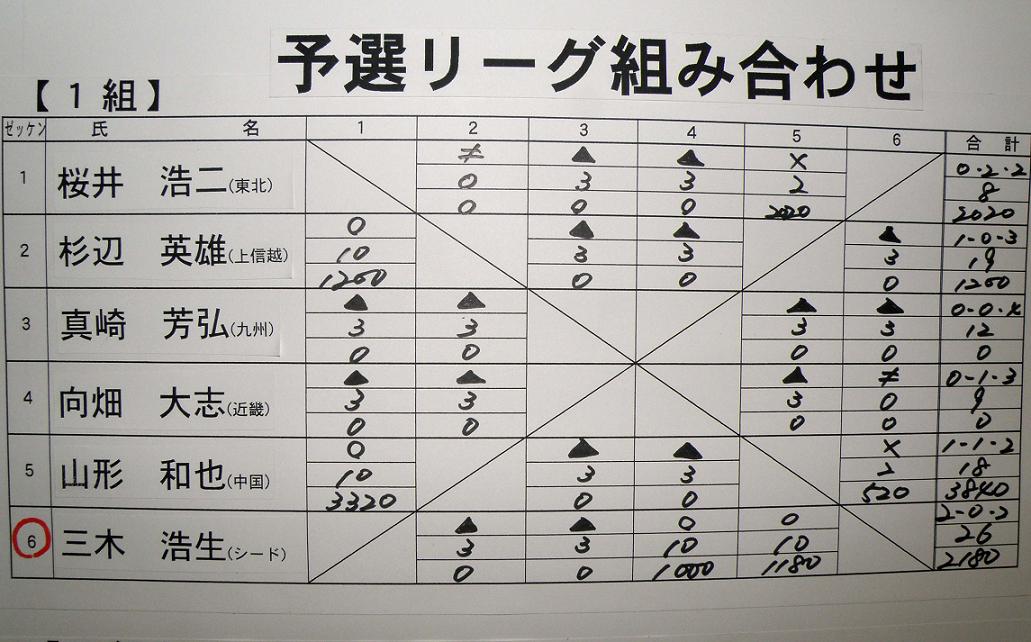 予選リーグ組み合わせ
【1組】
ゼッケン 氏 名 1 2 3 4 5 6 合計
1 桜井 浩二(東北) ≠ ▲ ▲ × 0-2-2
0 3 3 2 8
0 0 0 2020 2020
2 杉辺 英雄(上信越) 0 ▲ ▲ ▲ 1-0-3
10 3 3 3 19
1260 0 0 0 1260
3 真崎 芳弘(九州) ▲ ▲ ▲ ▲ 0-0-4
3 3 3 3 12
0 0 0 0 0
4 向畑 大志(近畿) ▲ ▲ ▲ ≠ 0-1-3
3 3 3 0 9
0 0 0 0 0
5 山形 和也(中国) 0 ▲ ▲ × 1-1-2
10 3 3 2 18
3320 0 0 520 3840
6 三木 浩生(シード) ▲ ▲ 0 0 2-0-2
3 3 10 10 26
0 0 1000 1180 2180